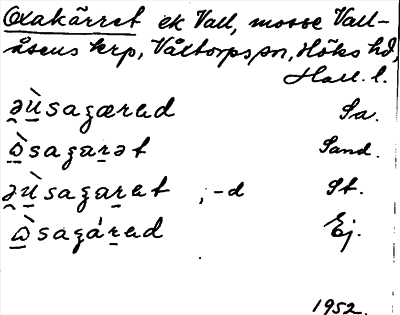 Oxakärret ek Vall, mosse Vall-
åsens krp, Våxtorps sn, Höks hd,
Hall. l.
ə̯ù̱sagæread Sa.
ὼ̱saga̱rət Sand.
ə̯ù̱saga̱ret , -d St.
ὼ̱sagáred Ej.
1952.